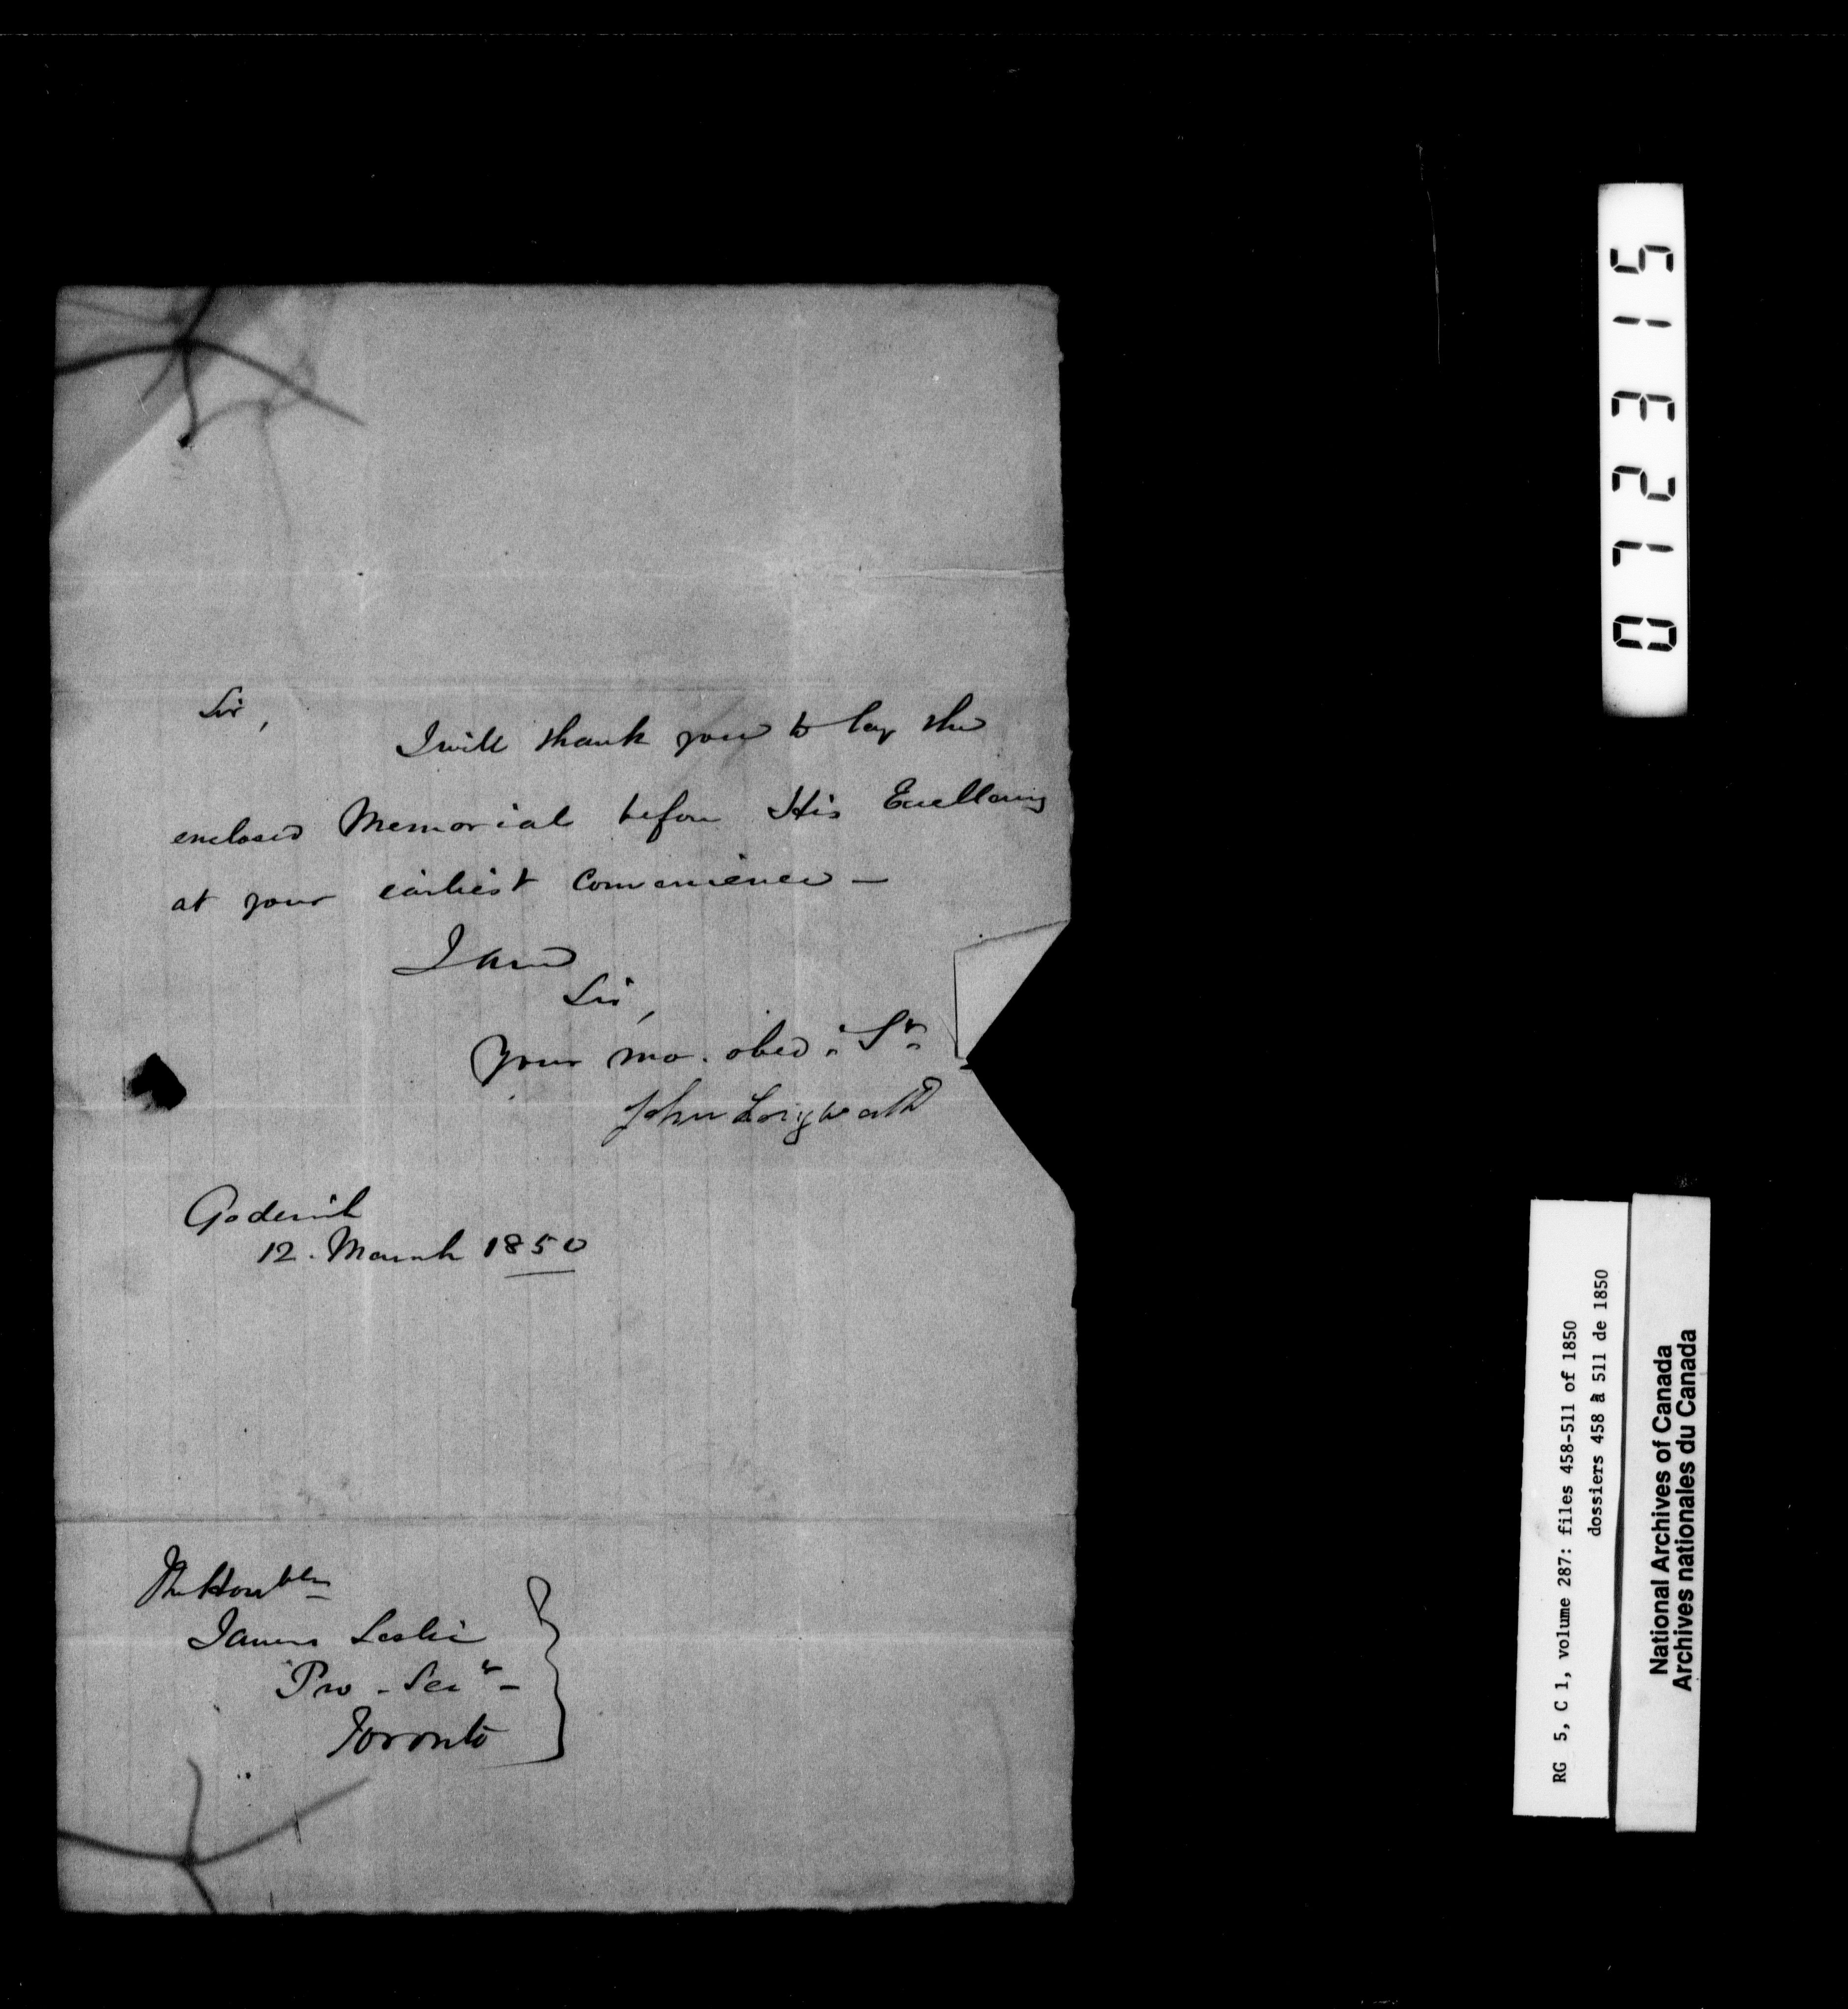 Sir,
I will thank you to lay the
enclosed Memorial before His Excellency
at your earliest convenience —
I am
Sir,
Your mo. obed. St.
John Longworth
Goderich
12. March 1850
The Honble
James Leslie
Pro - Secy -
Toronto
072315
RG 5, C 1, volume 287: files 458-511 of 1850
dossiers 458 à 511 de 1850
National Archives of Canada
Archives nationales du Canada